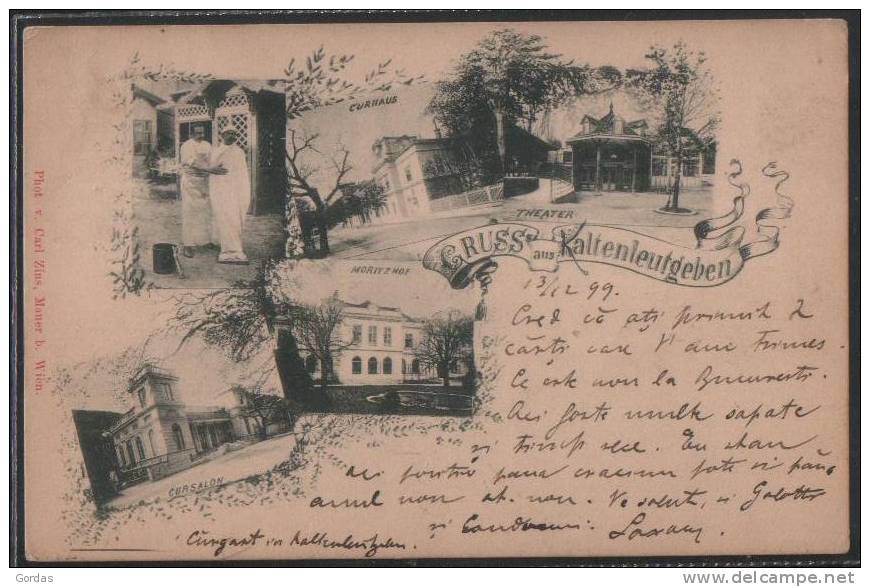 CURHAUS
THEATER
GRUSS aus Kaltenleutgeben
MORITZHOF
CURSALON
Phot. v. Carl Zins, Mauer b. Wien.
13/12 99.
Cred că ați primit 2
cărți care vi am trimes.
Ce este nou la Bucuresti.
Aci foste multe zapate
si timp rece. Eu stau
aci pentru pana craciun pote si pân
anul nou st. nou. Ve salut, si
si
Curgast in Kaltenleutgeben.
Gordas
www.delcampe.net